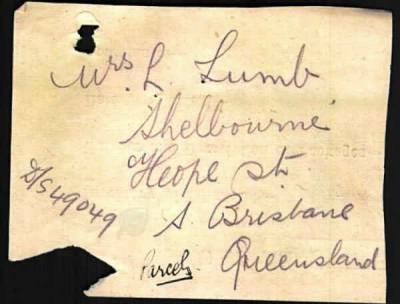 Mrs. L. Lumb
Shelbourne
Hope St.
S Brisbane
Queensland
D/S49049
Parcels